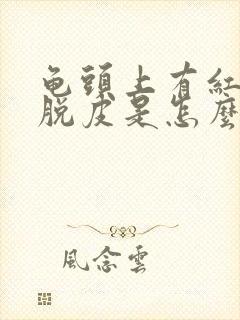 龟頭上有紅
脱皮是怎麼
風念雲